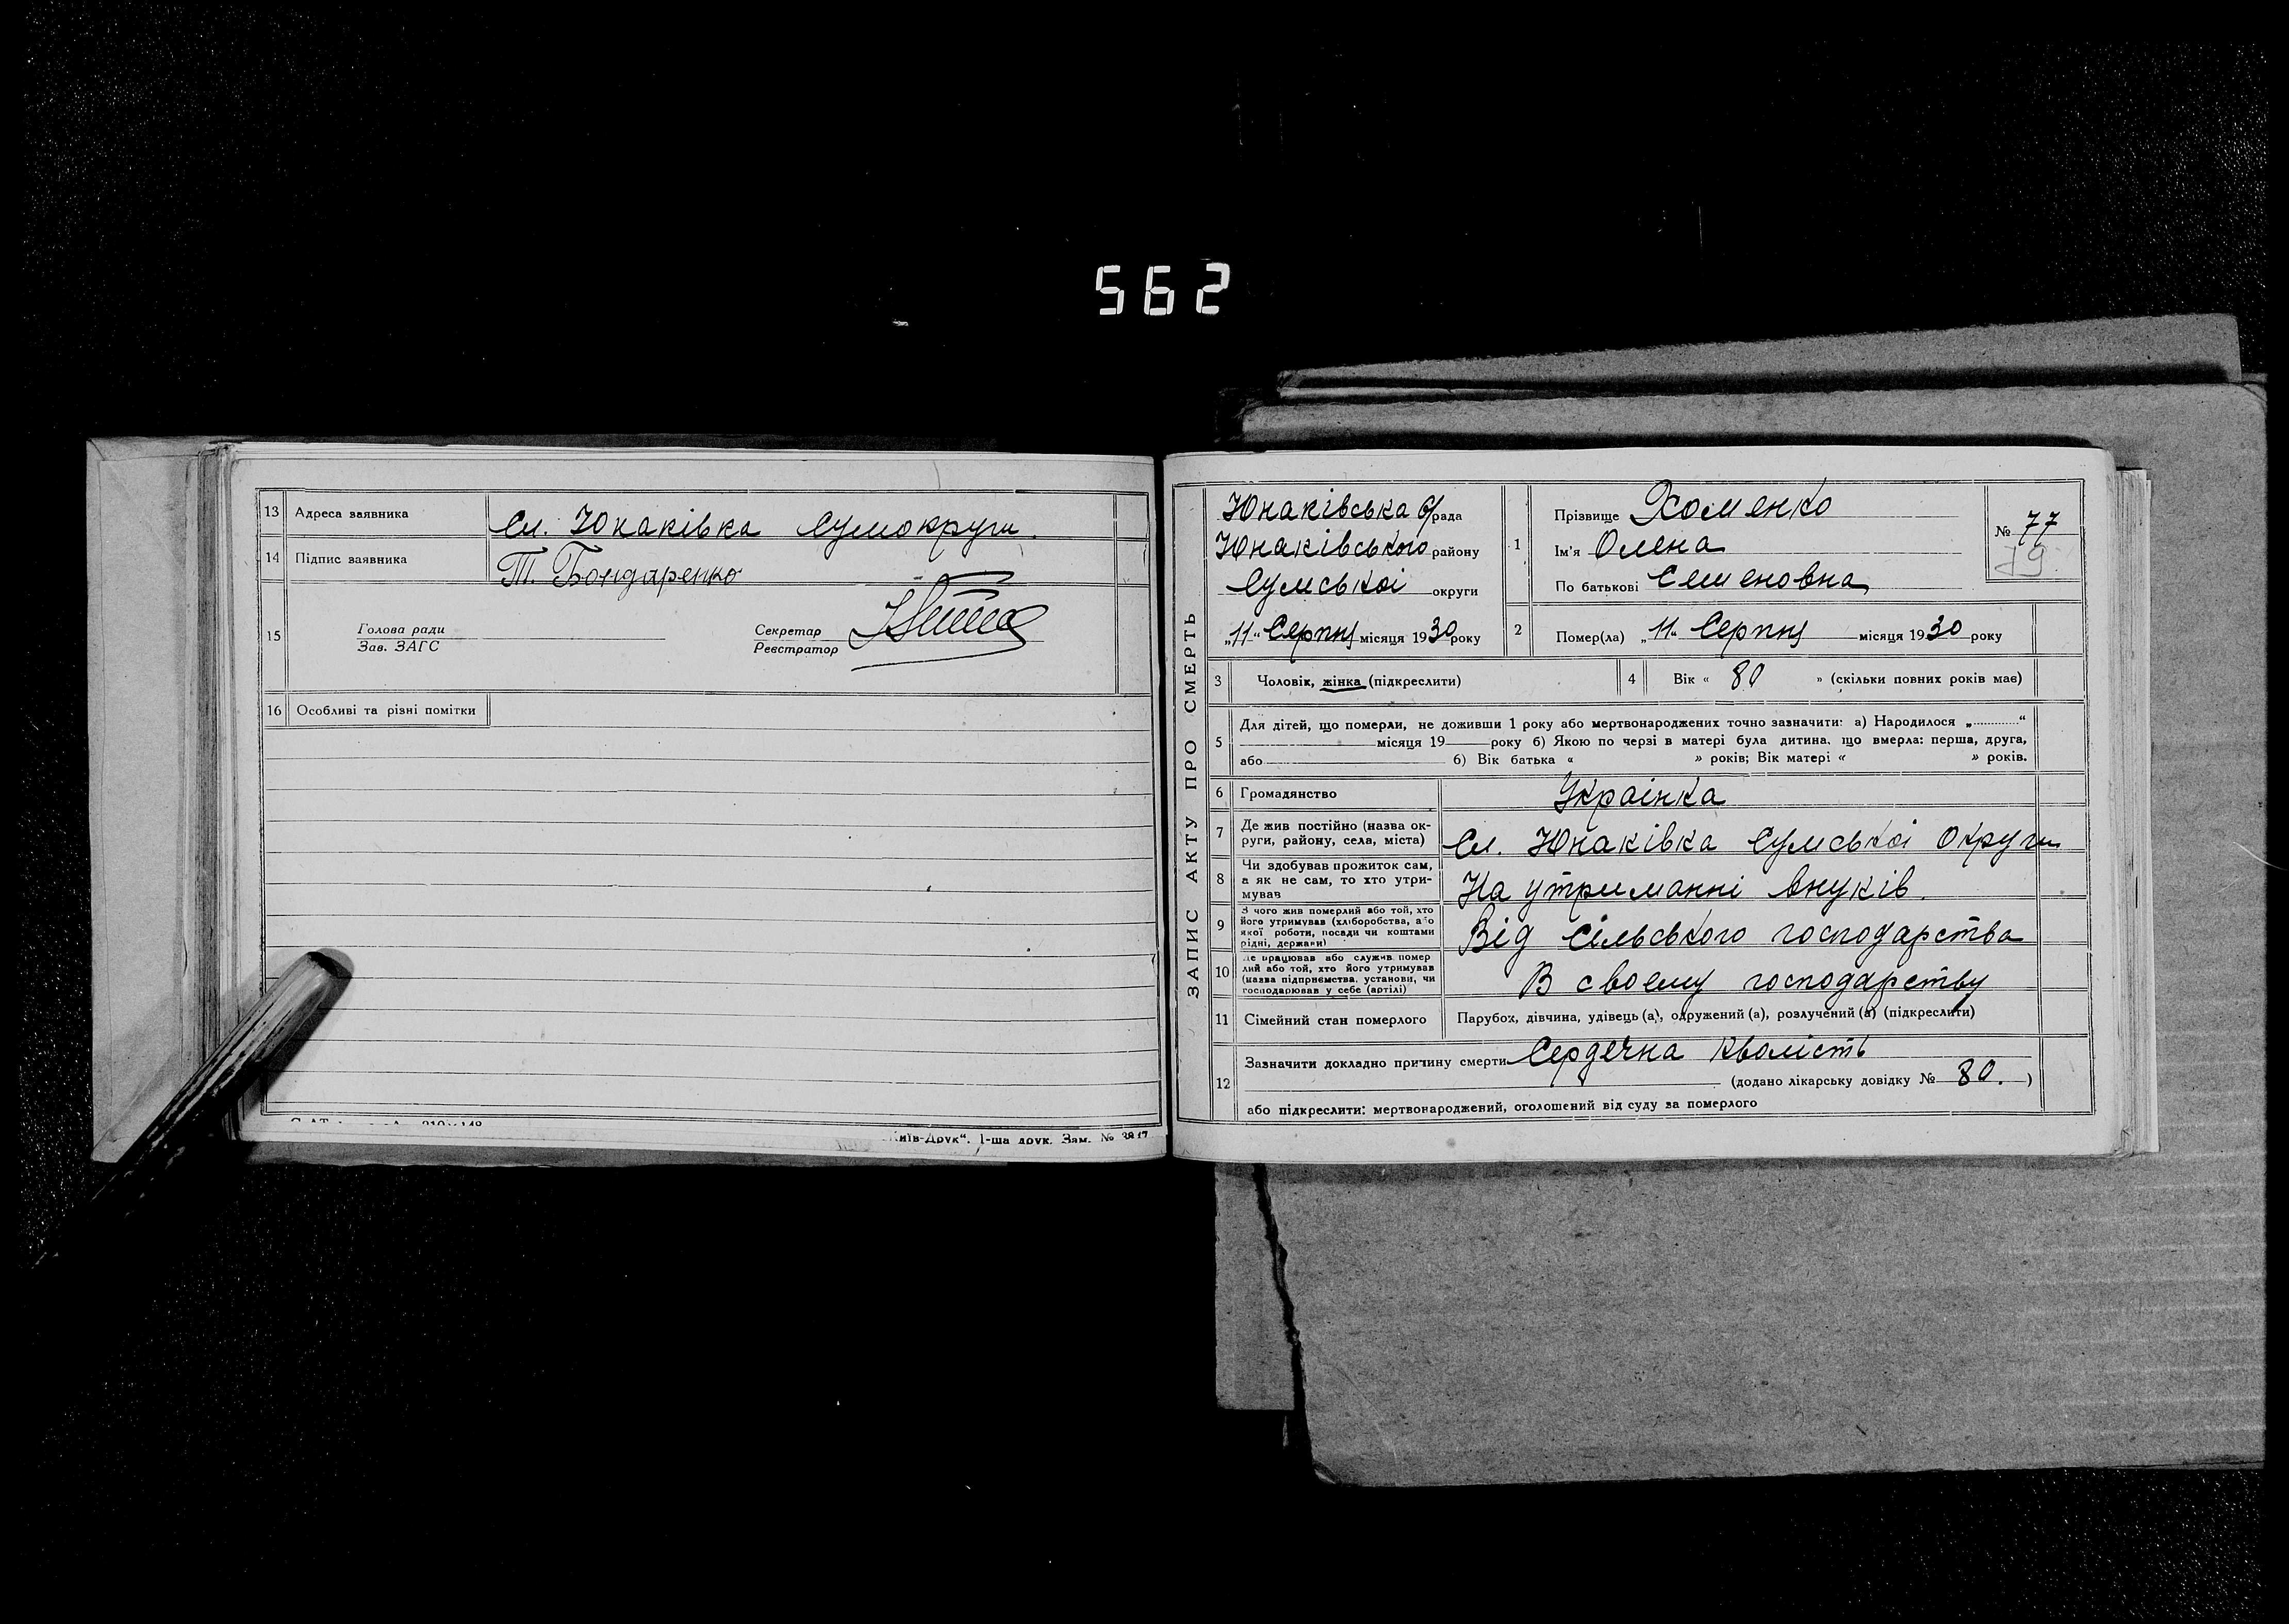 562
13 Адреса заявника Сл. Юнаківка Сумокруги.
14 Підпис заявника Т. Бондаренко
15 Голова ради
Зав. ЗАГС
Секретар
Реєстратор
16 Особливі та різні помітки
Друк“. 1-ша друк. Зам. №
ЗАПИС АКТУ ПРО СМЕРТЬ
Юнаківська с/рада
Юнаківського району
Сумської округи
„11“ Серпня місяця 1930 року
1 Прізвище Хоменко
Ім'я Олена
По батькові Семеновна
№ 77
79
2 Помер(ла) „11“ Серпня місяця 1930 року
3 Чоловік, жінка (підкреслити)
4 Вік « 80 » (скільки повних років має)
5 Для дітей, що померли, не доживши 1 року або мертвонароджених точно зазначити: а) Народилося „ “
місяця 19 року б) Якою по черзі в матері була дитина, що вмерла: перша, друга,
або б) Вік батька « » років; Вік матері « » років.
6 Громадянство Украінка
7 Де жив постійно (назва ок-
руги, району, села, міста) Сл. Юнаківка Сумської Округи
8 Чи здобував прожиток сам,
а як не сам, то хто утри-
мував На утриманні внуків.
9 З чого жив померлий або той, хто
його утримував (хліборобства, або
якої роботи, посади чи коштами
рідні, держави) Від сільського господарства
10 Де працював або служив помер
лий або той, хто його утримував
(назва підприємства, установи, чи
господарював у себе (артілі) В своему господарству
11 Сімейний стан померлого Парубок, дівчина, удівець (а), одружений (а), розлучений (а) (підкреслити)
12 Зазначити докладно причину смерти Сердечна кволість
(додано лікарську довідку № 80. )
або підкреслити: мертвонароджений, оголошений від суду за померлого